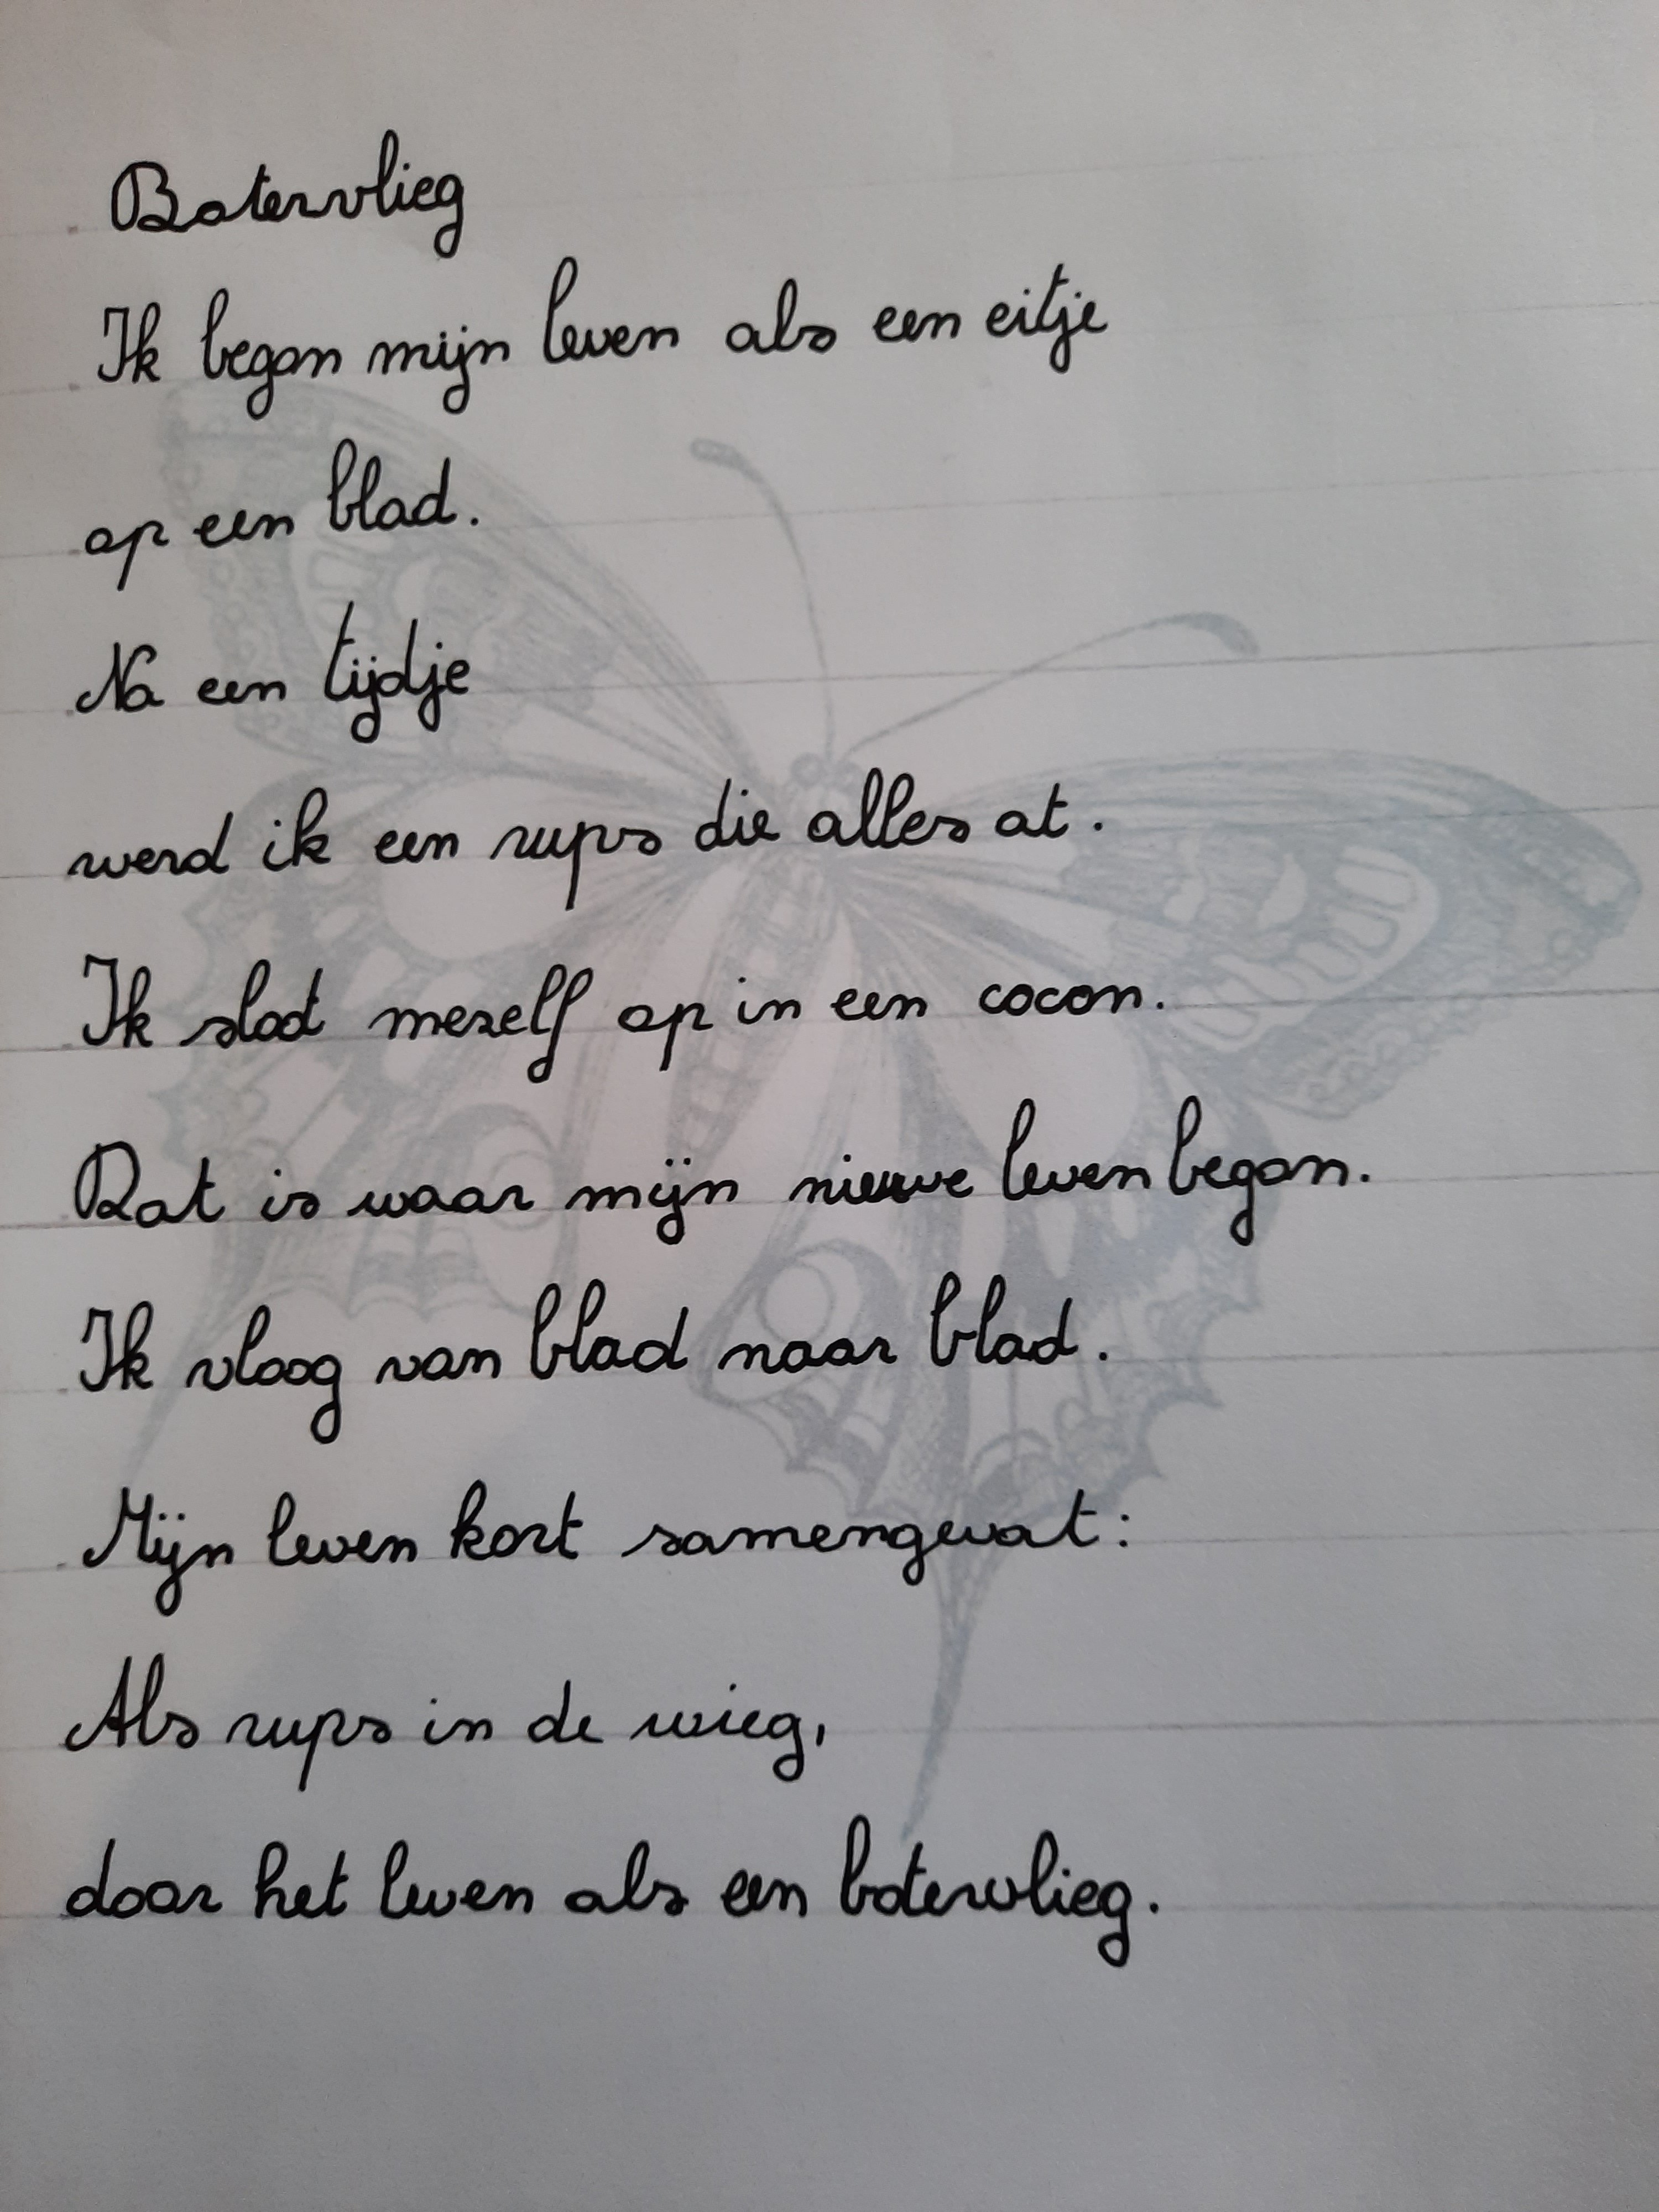 Botervlieg
Ik began mijn leven als een eitje
op een blad.
Na een tijdje
werd ik een rups die alles at.
Ik sloot mezelf op in een cocon.
Dat is waar mijn nieuwe leven began.
Ik vloog van blad naar blad.
Mijn leven kort samengevat:
Als rups in de wieg,
door het leven als een botervlieg.